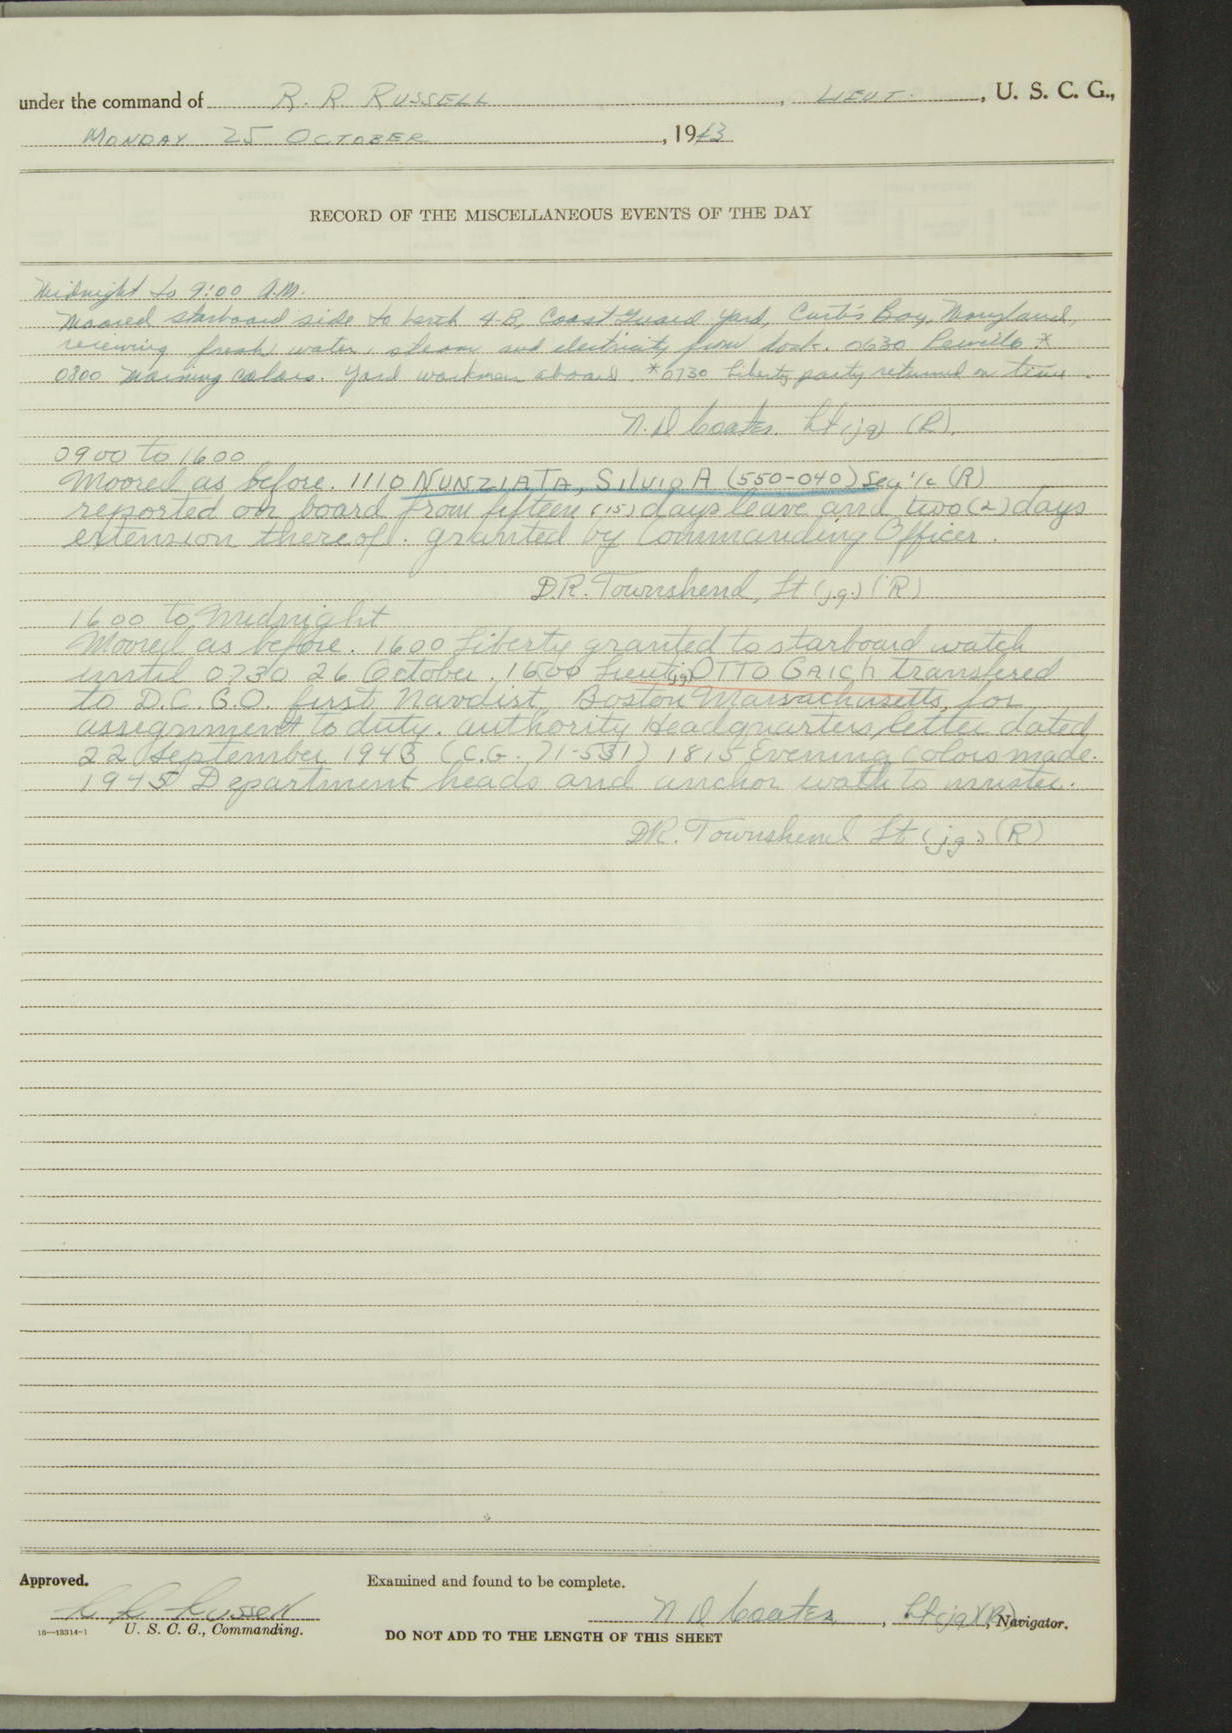 under the command of R. R. RUSSELL, LIEUT., U. S. C. G.,
MONDAY 25 OCTOBER, 1943
RECORD OF THE MISCELLANEOUS EVENTS OF THE DAY
Midnight to 9:00 A.M.
Moored starboard side to berth 4-B, Coast Guard Yard, Curtis Bay, Maryland,
receiving fresh water, steam and electricity from dock. 0630 Reveille *
0800 Morning colors. Yard workmen aboard. *0730 Liberty party returned on time.
N. D. Coates. Lt (jg) (R).
0900 to 1600
Moored as before. 1110 NUNZIATA, SILVIO A (550-040) Sea 1/c (R)
reported on board from fifteen (15) days leave and two (2) days
extension thereof. granted by Commanding Officer.
D.R. Townshend, Lt (j.g.) (R)
1600 to Midnight
Moored as before. 1600 Liberty granted to starboard watch
until 0730 26 October. 1600 Lieut (jg) OTTO GAICH transfered
to D.C.G.O. first Navdist, Boston Massachusetts, for
assignment to duty. authority Headquarters letter dated
22 September 1943 (C.G. 71-531) 1815 Evening Colors made.
1945 Department heads and anchor watch to muster.
D.R. Townshend Lt (jg) (R)
Approved.
Examined and found to be complete.
R R Russell
N D Coates, Lt (jg) (R), Navigator.
16—13314-1 U. S. C. G., Commanding.
DO NOT ADD TO THE LENGTH OF THIS SHEET